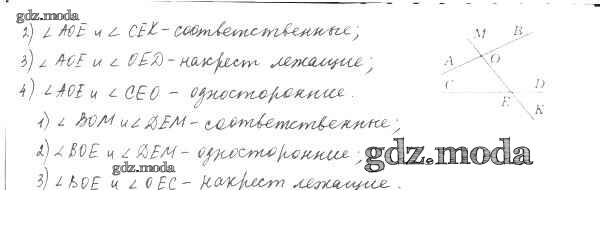 gdz.moda
2) ∠AOE и ∠CEK - соответственные;
3) ∠AOE и ∠OED - накрест лежащие;
4) ∠AOE и ∠CEO - односторонние.
1) ∠BOM и ∠DEM - соответственные;
2) ∠BOE и ∠DEM - односторонние;
gdz.moda
gdz.moda
3) ∠BOE и ∠OEC - накрест лежащие.
M B
A O
C D
E K